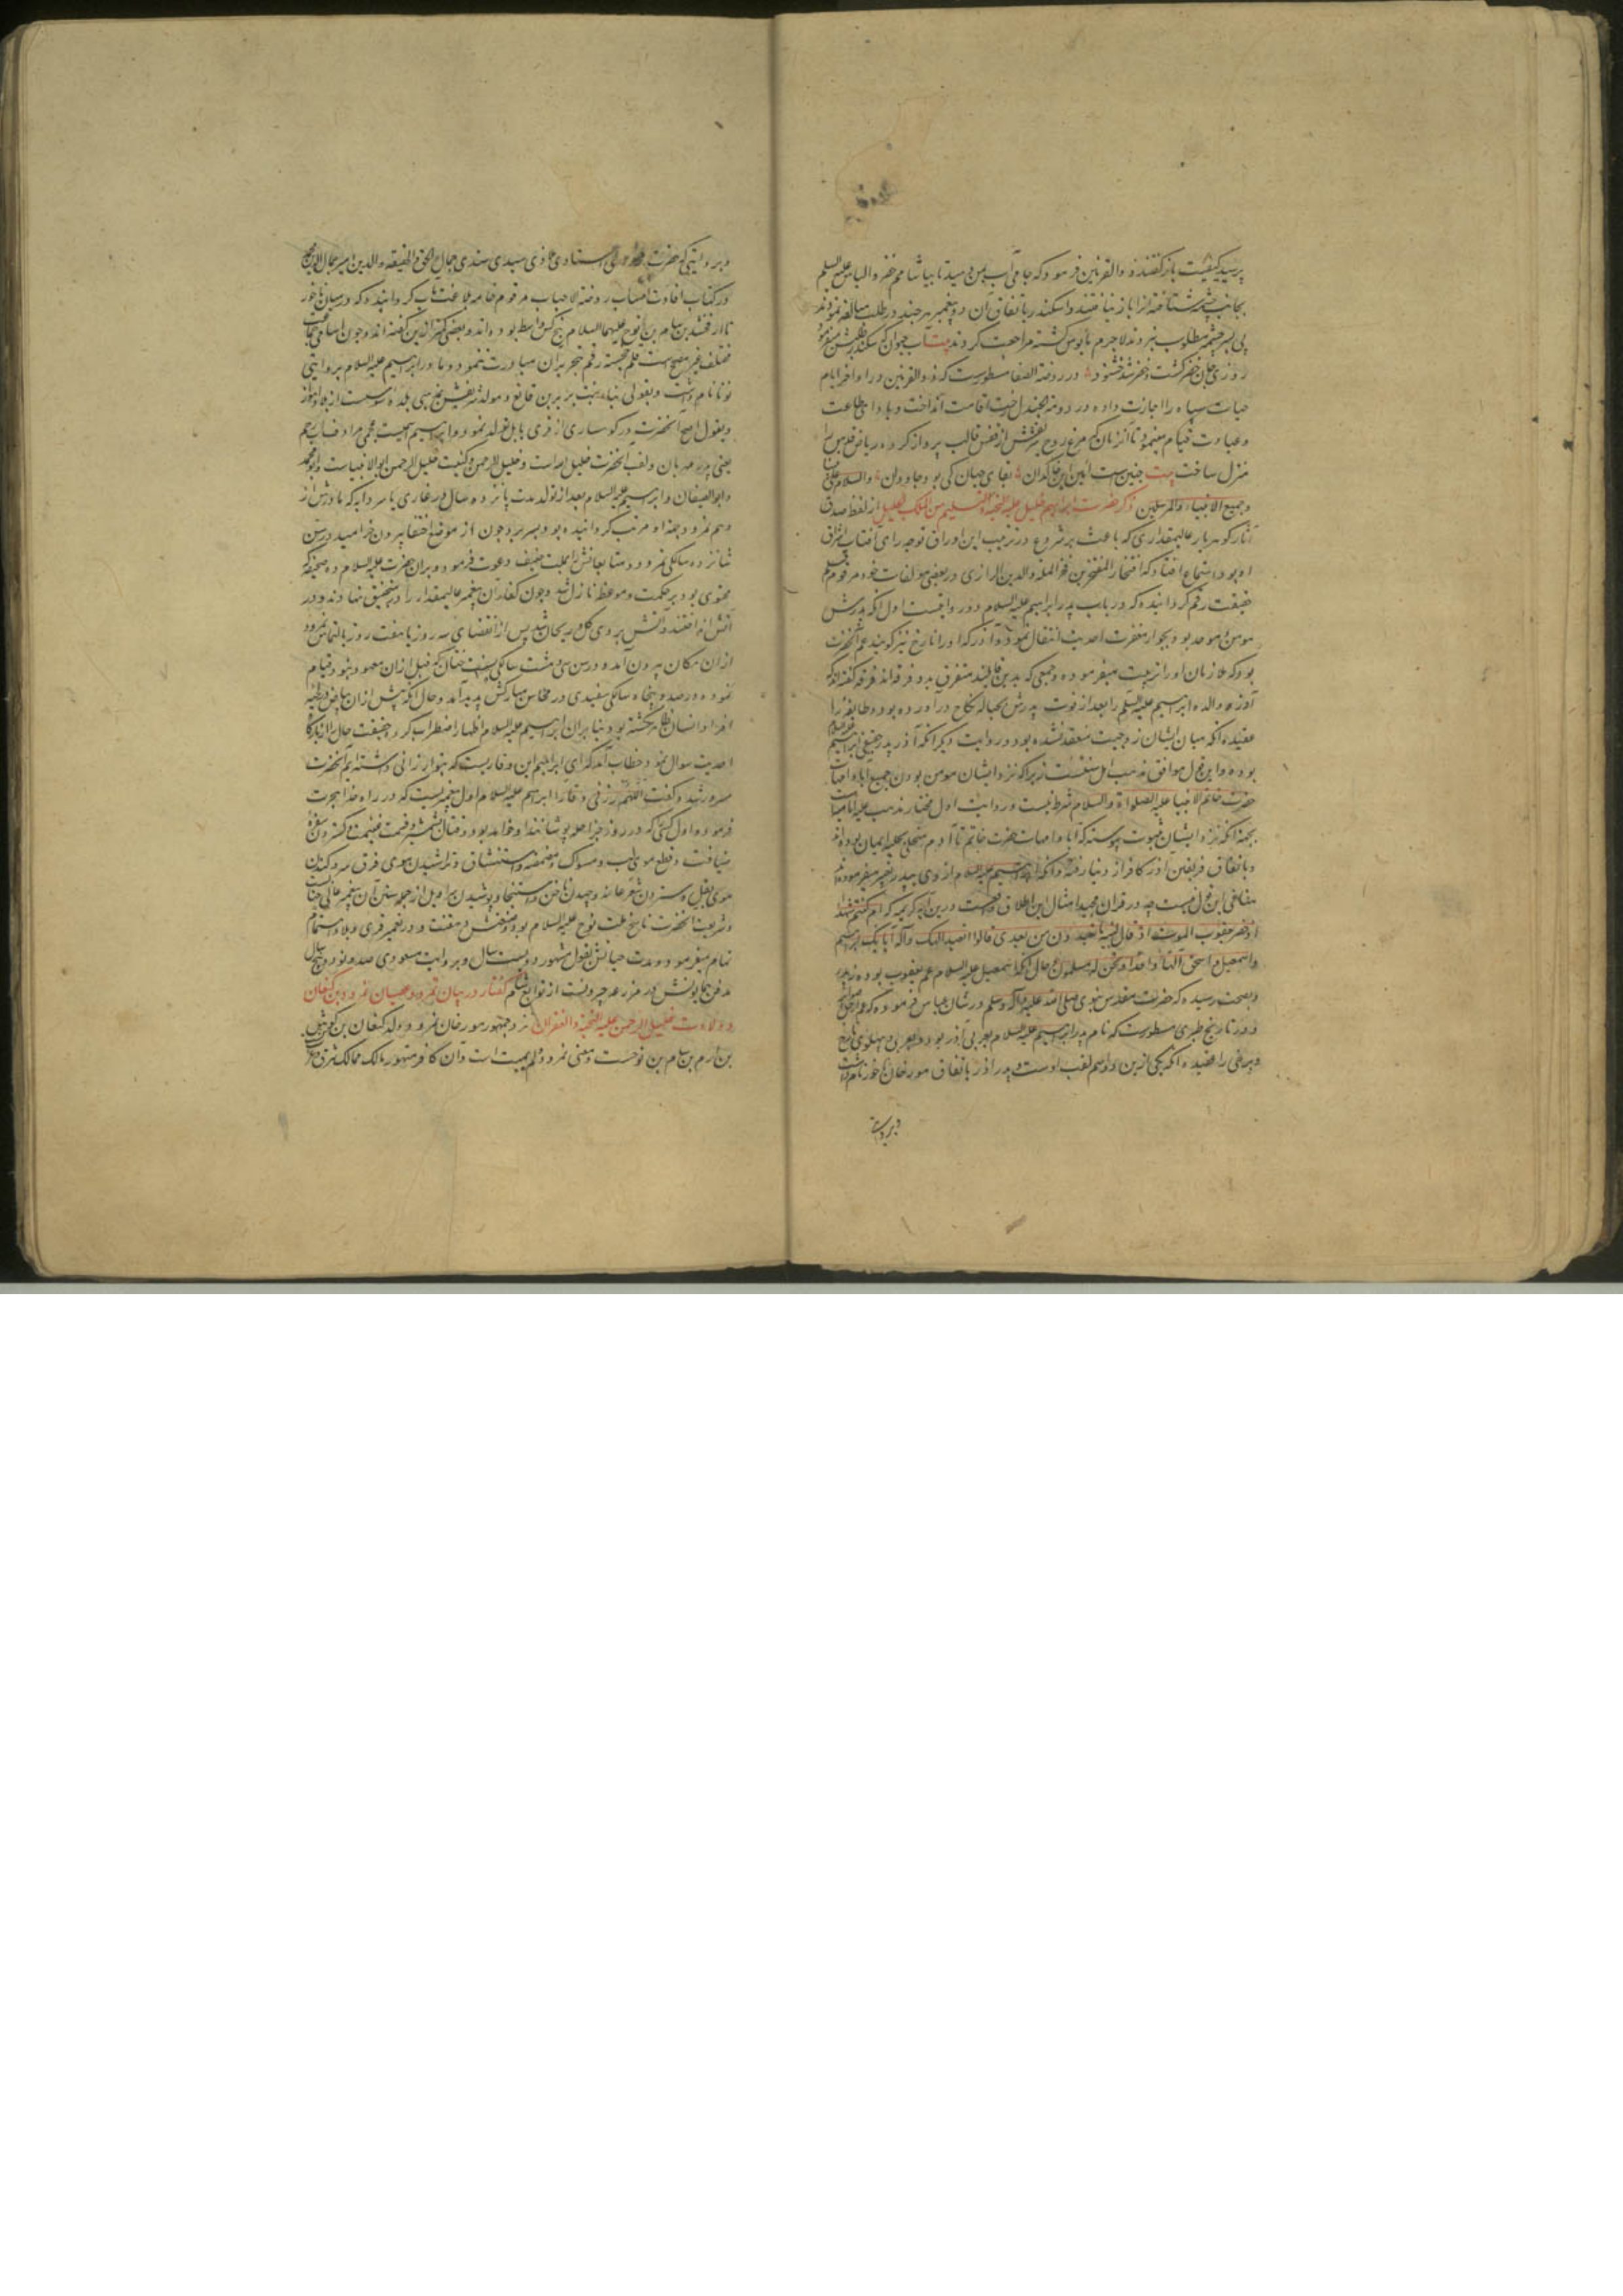 پرسید کیفیت باز گفتند ذو القرنین فرمود که جامی آب بمن دهید تا بیاشامم خضر و الیاس علیه السلم
بجانب چشمه شتافته آنرا باز نیافتند و اسکندر باتفاق آن دو پیغمبر هر چند در طلب مبالغه نمودند
پی بسرچشمه مطلوب نبردند لاجرم مایوس کشته مراجعت کردند بیت آب حیوان که سکندر طلبش میفرمود
روزی جان خضر کشت و خضر شد خشنود در روضة الصفا مسطورست که ذو القرنین در اواخر ایام
حیات سپاه را اجازت داده در دومة الجندل رخت اقامت انداخت و بادای طاعت
و عبادت قیام مینمود تا آنزمان که مرغ روح شریفش از قفس قالب پرواز کرده در ریاض قدس
منزل ساخت بیت چنین است آئین این خاکدان بقای جهان کی بود جاودان والسلام علی
و جمیع الانبیاء والمرسلین ذکر حضرت ابراهیم خلیل علیه التحیة و التسلیم من الملک الجلیل از لفظ صدق
آثار کوهربار عالیمقداری که باعث بر شروع در ترتیب این اوراق توجه رای آفتاب اشراق
او بود استماع افتاد که افتخار المفتخرین فخر المله والدین الرازی در بعضی مولفات خود مرقوم قلم
حقیقت رقم کردانیده که در باب پدر ابراهیم علیه السلام دو روایتست اول آنکه پدرش
مومن و موحد بود و بجوار مغفرت احدیت انتقال نمود و آذر که او را تارخ نیز کویند عم آنحضرت
بود که ملازمان او را تربیت میفرموده و جمعی که بدین قایلند متفرق بدو فرقه اند فرقه گفته اند که
آذر والده ابراهیم علیه السلم را بعد از فوت پدرش بحباله نکاح در آورده بود و طایفه را
عقیده آنکه میان ایشان زوجیت منعقد نشده بود و روایت دیکر آنکه آذر پدر حقیقی ابراهیم
بوده و این قول موافق مذهب اهل سنتست زیرا که نزد ایشان مومن بودن جمیع آبا و امهات
حضرت خاتم الانبیا علیه الصلواة والسلام شرط نیست و روایت اول مختار مذهب علیه امامیه است
بجهة آنکه نزد ایشان بثبوت پیوسته که آبا و امهات حضرت خاتم تا آدم متحلی بحلیه ایمان بوده اند
و باتفاق فریقین آذر کافر از دنیا رفته و آنکه ابراهیم علیه السلام از وی بپدر تعبیر میفرموده
منافی این قول نیست چه در قران مجید امثال این اطلاق واقعست درین آیه کریمه که ام کنتم شهدا
اذ حضر یعقوب الموت اذ قال لبنیه ما تعبدون من بعدی قالوا نعبد الهک و اله آبایک ابراهیم
و اسمعیل و اسحق الها واحدا و نحن له مسلمون و حال آنکه اسمعیل علیه السلام عم یعقوب بوده
و بصحت رسیده که حضرت مقدس نبوی صلی الله علیه و آله وسلم در شان عباس فرموده که
و در تاریخ طبری مسطورست که نام پدر ابراهیم علیه السلام بعربی آذر بوده و بعبری و پهلوی تارخ
و برخی را عقیده آنکه یکی ازین دو اسم لقب اوست و پدر آذر باتفاق مورخان ناخور نام داشت
و بروایت
و بروایتی که حضرت استادی مخدومی سیدی سندی جمال الحق والحقیقه والدین امیر جمال الدین
در کتاب افادت انتساب روضة الاحباب مرقوم خامه بلاغت مآب کردانیده که در میان ناخور
تا ارفخشد بن سام بن نوح علیهما السلام پنج کس واسطه بوده اند و بعضی کمتر ازین گفته اند و چون اسامی
مختلف غیر مصححست قلم خجسته رقم بتحریر آن مبادرت ننمود و مادر ابراهیم علیه السلام بروایتی
نونا نام داشت و بقولی بنت بربر بن قانع و مولد شریفش بمذهبی بلده سوسست از بلاد اهواز
و بقول اصح آنحضرت در کوساری از قری بابل تولد نمود و ابراهیم اسمیست عجمی مرادف اب رحیم
یعنی پدر مهربان و لقب آنحضرت خلیل الله است و خلیل الرحمن و کنیت خلیل الرحمن ابو الانبیاست و ابو محمد
و ابو الضیفان و ابراهیم علیه السلام بعد از تولد مدت پانزده سال در غاری یا سردابه که مادرش از
وهم نمرود جهة او مرتب کردانیده بود بسر برد و چون از موضع اختفا بیرون خرامید در سن
شانزده سالکی نمرود و متابعانش را بملت حنیف دعوت فرمود و بران حضرت علیه السلام ده صحیفه که
محتوی بود بر حکمت و موعظه نازل شد و چون کفار آن پیغمبر عالیمقدار را در منجنیق نهادند و در
آتش انداختند آتش بر وی گل و ریحان شد پس از انقضای سه روز یا هفت روز بالتماس نمرود
از ان مکان بیرون آمد و در سن سی و هشت سالکی بسنت ختان که قبل ازان معهود نبود قیام
نمود و در صد و پنجاه سالکی سفیدی در محاسن مبارکش پدید آمد و حال آنکه پیش ازان بیاض در لحیه
افراد انسان ظاهر نکشته بود بنابران ابراهیم علیه السلام اظهار اضطراب کرد و حقیقت حال از بارگاه
احدیت سوال نمود خطاب آمد که ای ابراهیم این وقاریست که بتو ارزانی داشته ایم آنحضرت
مسرور شد و گفت اللهم زدنی وقارا ابراهیم علیه السلام اول پیغمبریست که در راه خدا هجرت
فرموده و اول کسی که در روز جزا حله پوشانند او خواهد بود و ختان و شمشیر و قسمت غنیمت و کستردن سفره
ضیافت و قطع موی لب و مسواک و مضمضه و استنشاق و تراشیدن موی فرق سر و کندن
موی بغل و ستردن شعر عانه و چیدن ناخن و استنجا و پوشیدن سراویل از جمله سنن آن پیغمبر عالی جنابست
و شریعت آنحضرت ناسخ ملت نوح علیه السلام بود و در تعمیر قری و بلاد اهتمام
تمام میفرمود و مدت حیاتش بقول مشهور دویست سال و بروایت مسعودی صد و نود و پنج سال
مدفن همایونش در مزرعه حبرونست از توابع شام گفتار در بیان نمرود و عصیان نمرود بن کنعان
و ولادت خلیل الرحمن علیه التحیة و الغفران نزد جمهور مورخان نمرود ولد کنعان بن کوش
بن ارم بن سام بن نوحست و معنی نمرود لم یمت است و آن کافر متهور مالک ممالک شرق و غرب